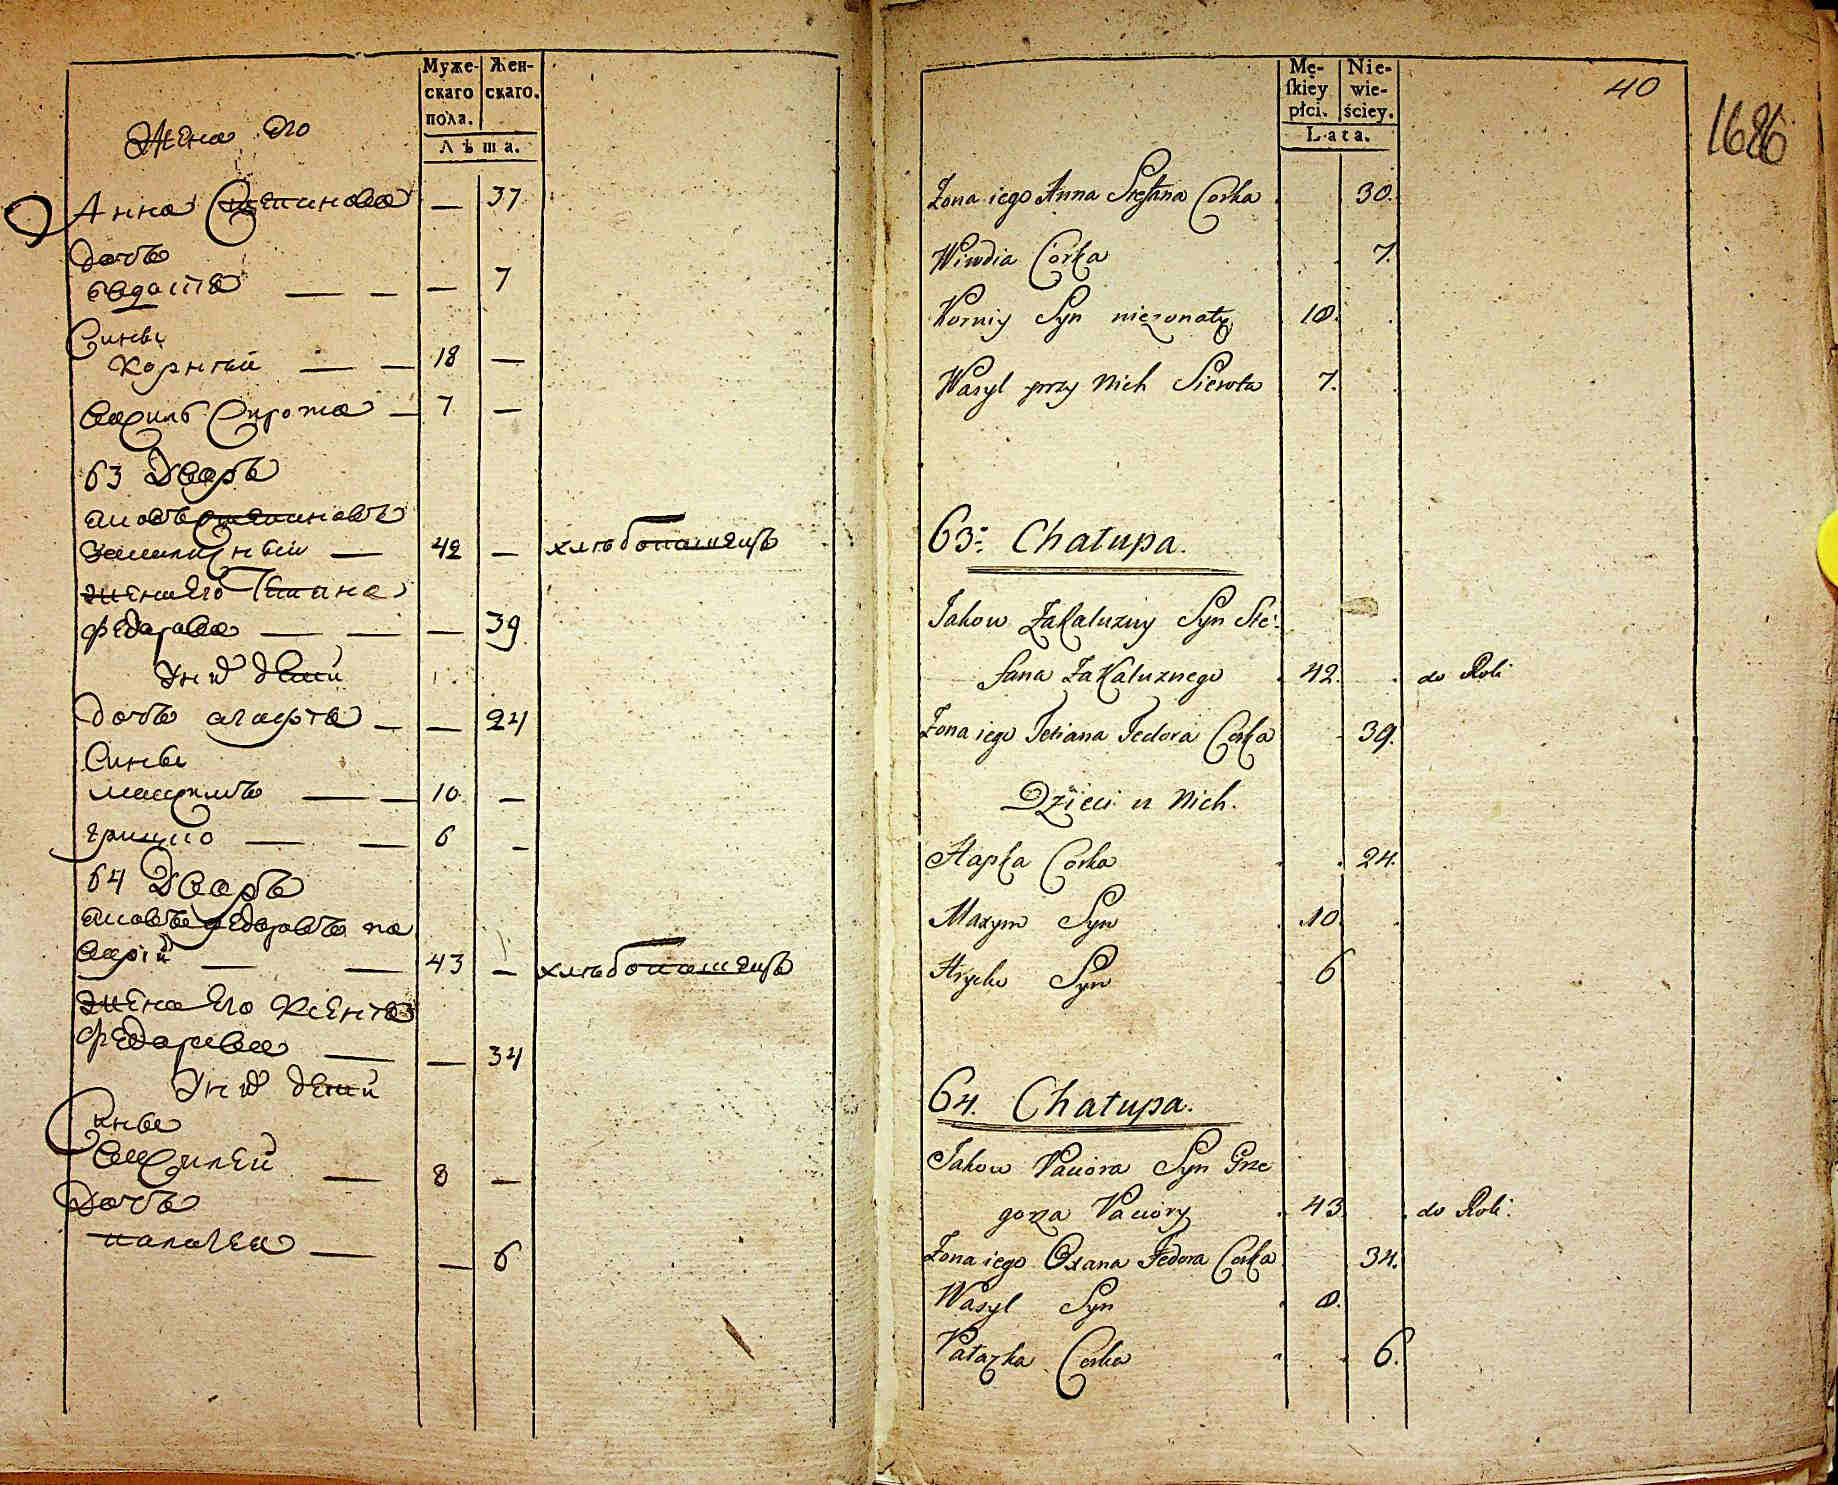 Муже-
скаго
пола.
Жен-
скаго.
Лѣта.
Жена его
Анна — 37
дочь
— — — 7
Сины
Корнѣй — — 18 —
Василь Сирота — 7 —
63 Дворъ
Яковъ
— 42 — хлѣбопашецъ
жена его Татияна
Федорова — — — 39
У них дети
дочь агафия — — 24
Сины
Максимъ — — 10 —
грицко — — 6 —
64 Дворъ
Яковъ Федоровъ
— — 43 — хлѣбопашецъ
жена его Ксения
Федорова — — 34
У них дети
Сины
Василей — 8 —
Дочь
палагея — — 6
Mę-
ſkiey
płci.
Nie-
wie-
ściey.
Lata.
40
1686
Żona iego Anna Stefana Corka 30.
Corka 7.
Korniy Syn nieżonaty 18.
Wasyl przy Nich Sierota 7.
63: Chałupa.
Jakow Zakałuzny Syn Ste:
fana Zakałuznego 42. do Roli
Żona iego Tetiana Fedora Corka 39.
Dzieci u Nich.
Hapka Corka 24.
Maxym Syn 10.
Hrycko Syn 6
64. Chałupa.
Jakow Syn Grze
gorza 43. do Roli.
Żona iego Oxana Fedora Corka 34.
Wasyl Syn 8.
Pałazka Corka 6.